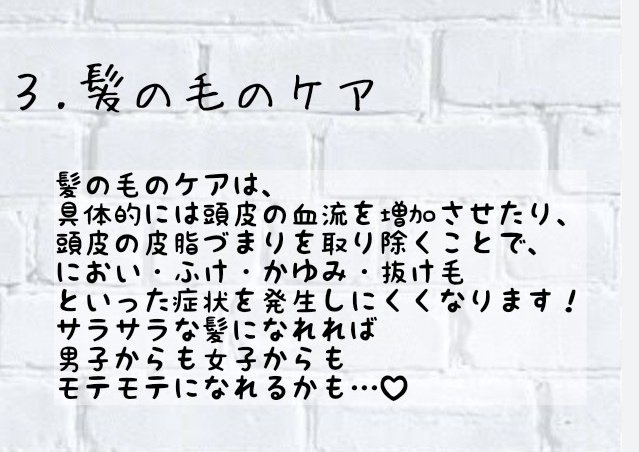 3.髪の毛のケア
髪の毛のケアは、
具体的には頭皮の血流を増加させたり、
頭皮の皮脂づまりを取り除くことで、
におい・ふけ・かゆみ・抜け毛
といった症状を発生しにくくなります!
サラサラな髪になれれば
男子からも女子からも
モテモテになれるかも…♡